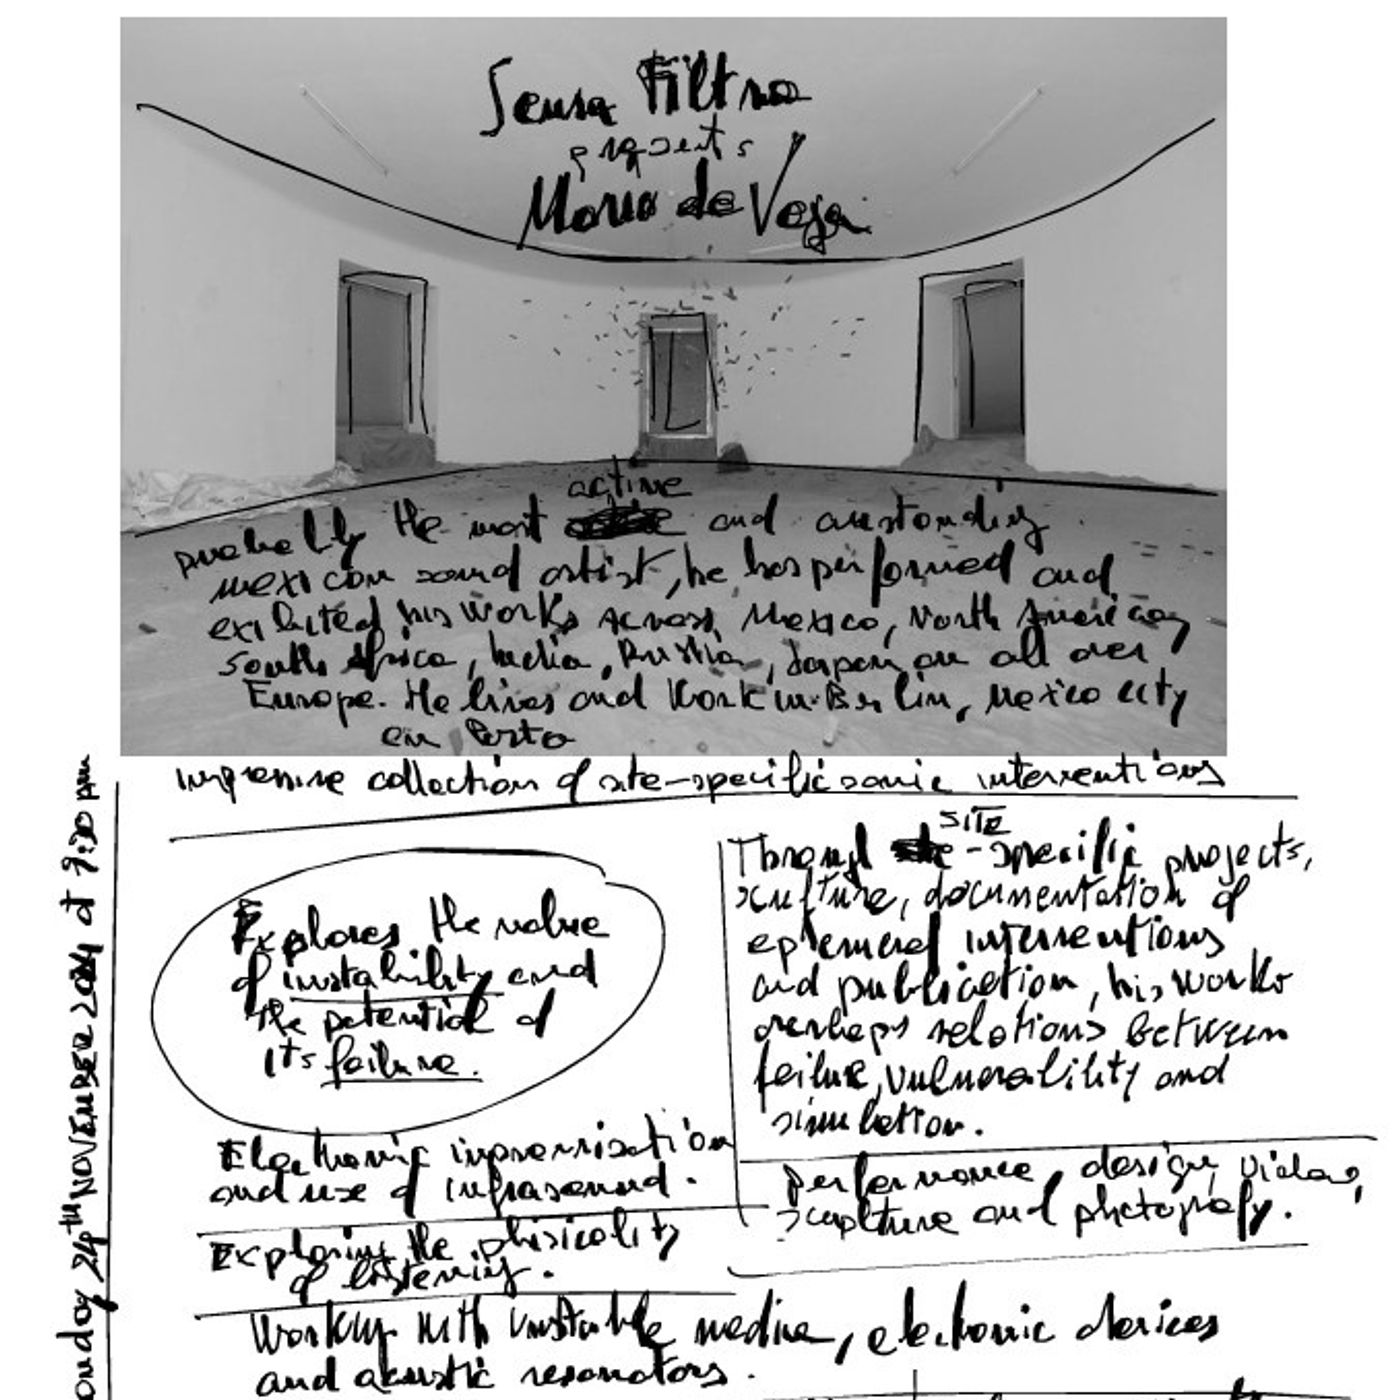 Senza Filtro
presents
Mario de Vega
active
probably the most and austonding
mexican sound artist, he has performed and
exibited his works across Mexico, North America,
South Africa, India, Russia, Japan an all over
Europe. He lives and work in Berlin, Mexico city
en Porto
impressive collection of site-specific sonic interventions
Explores the value
of instability and
the potential of
its failure.
Electronic improvvisation
and use of infrasound.
Exploring the phisicality
of listening.
SITE
Through -specific projects,
sculture, documentation of
ephemeral interventions
and publication, his works
overhaps relations between
failure, vulnerability and
simulation.
performance, design, video,
sculpture and photografy.
Working with unstable media, electronic devices
and acustic resonators.
onday 24th NOVEMBER 2024 at 7:30 pm